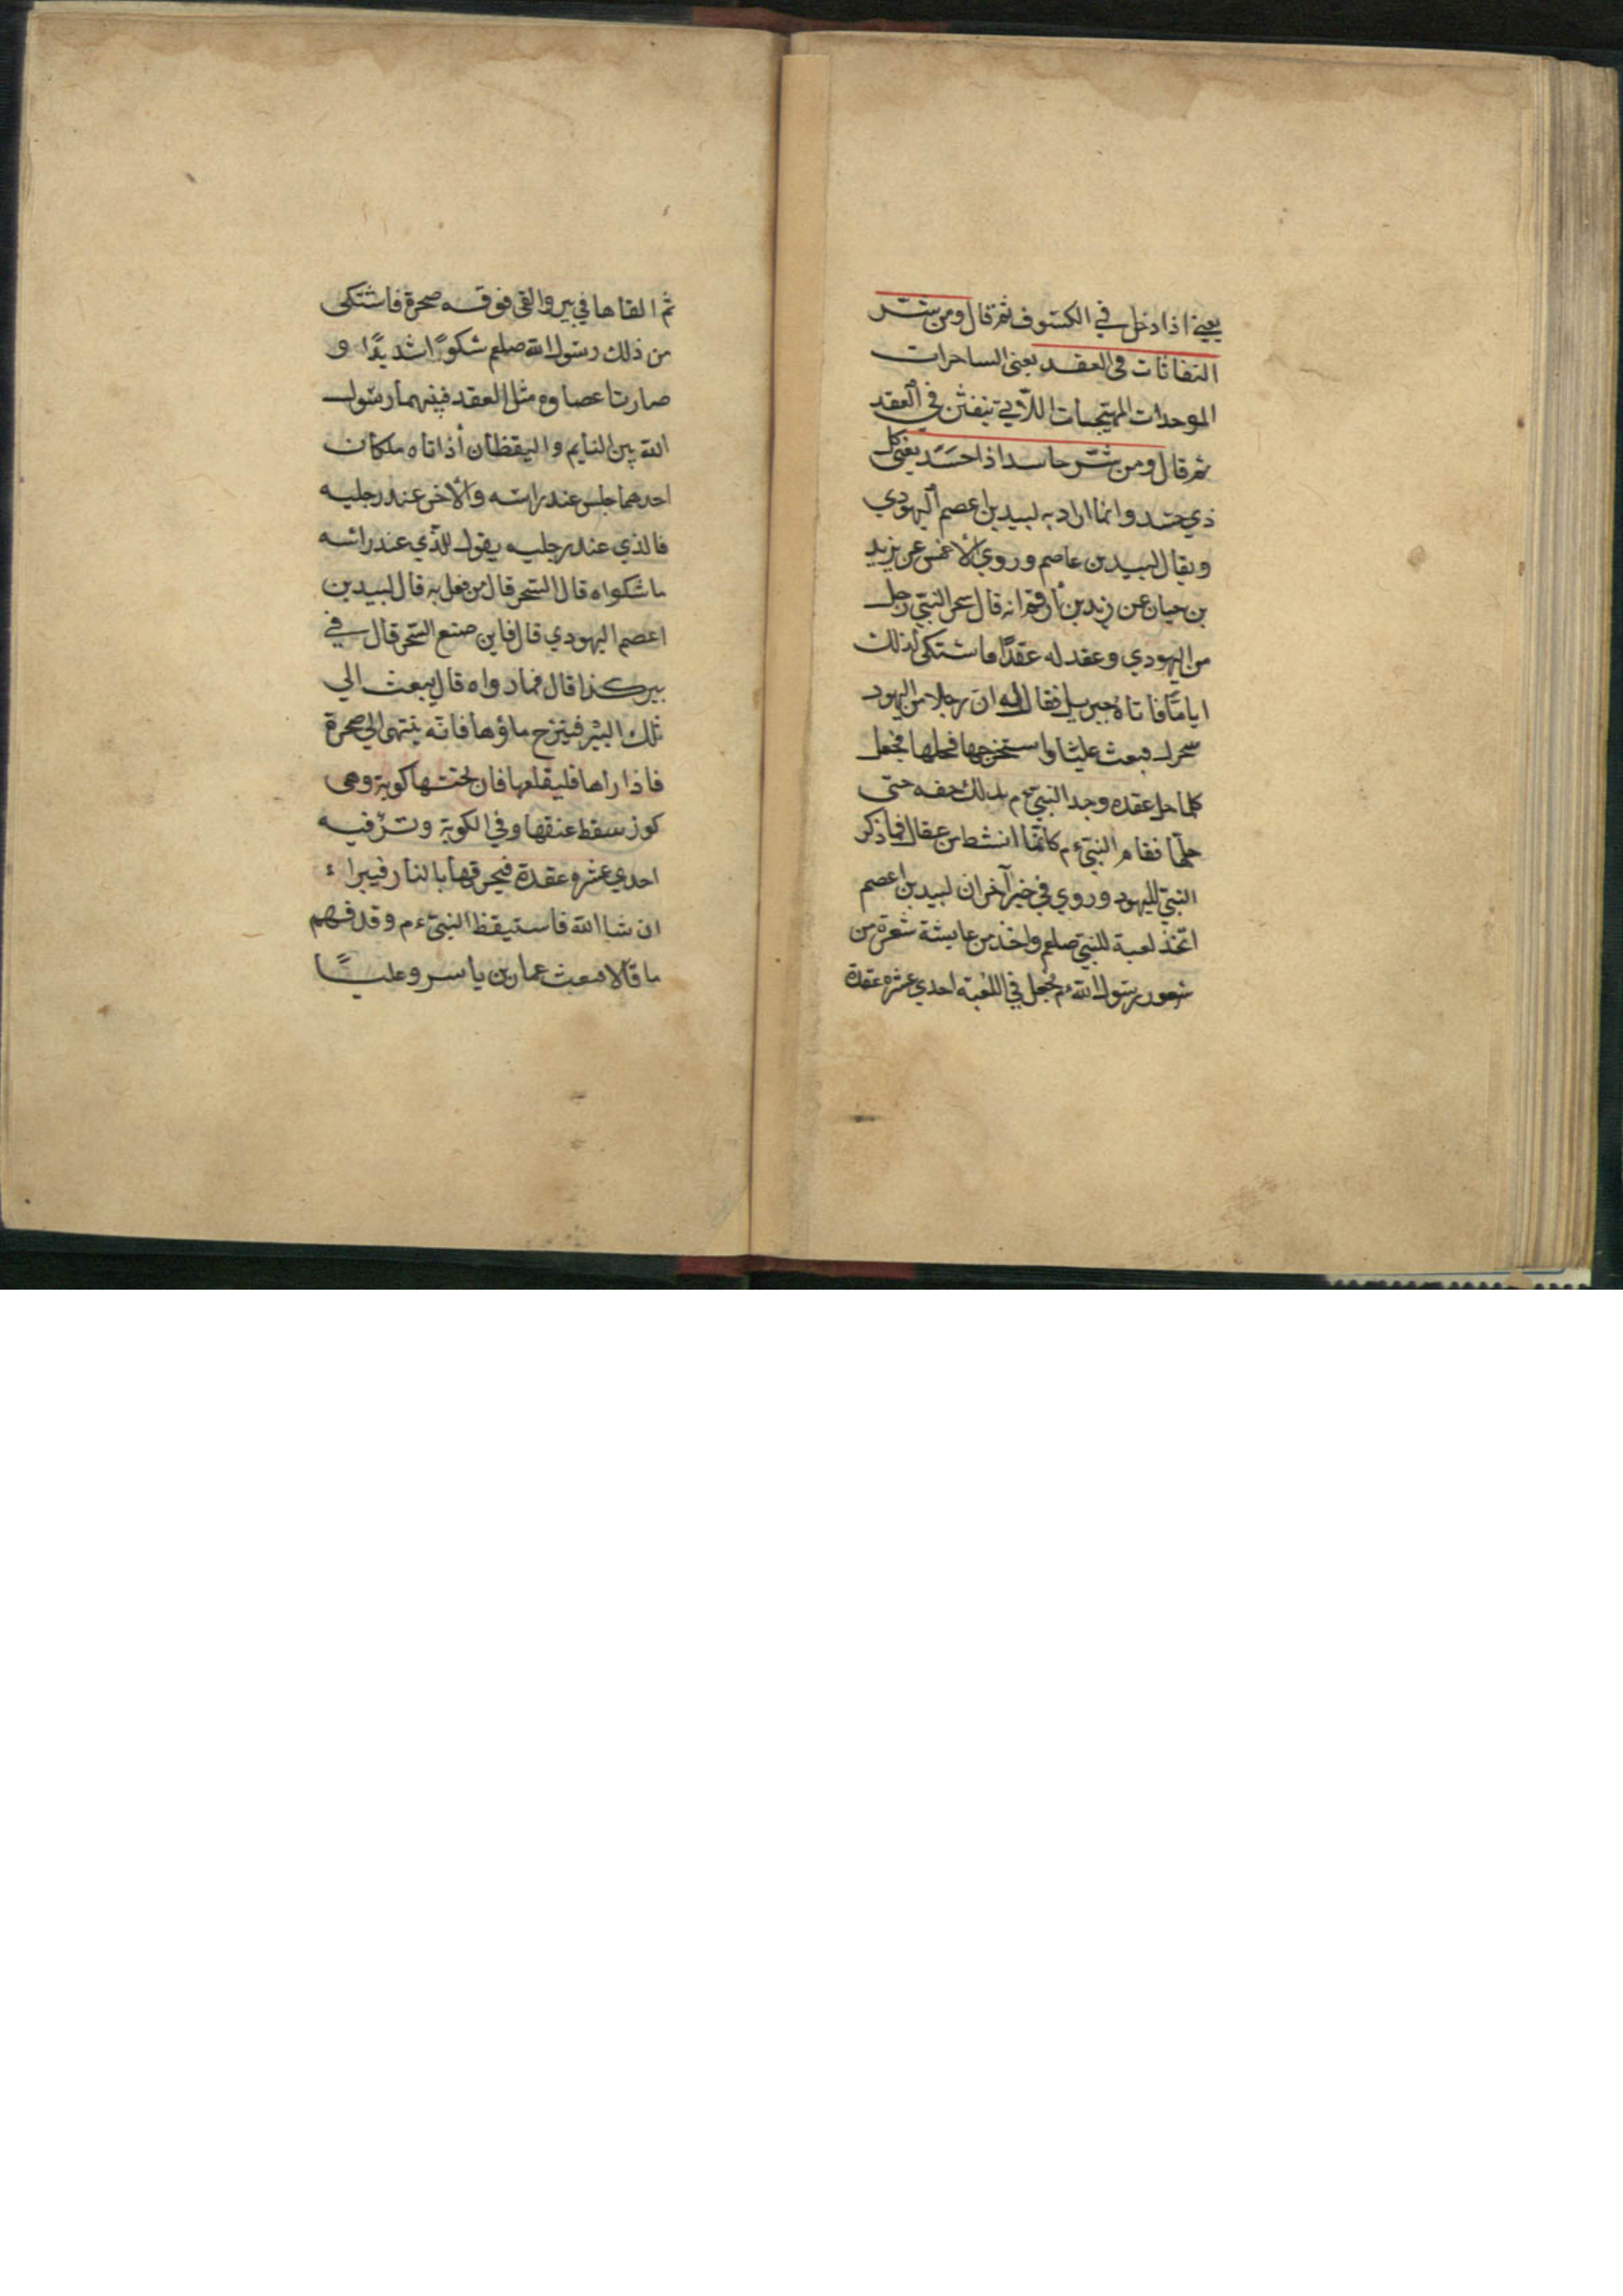 يعني اذا دخل في الكسوف ثم قال ومن شر
النفاثات في العقد يعني الساحرات
الموحدات المهيجات اللآتي ينفثن في العقد
ثم قال ومن شر حاسد اذا حسد يعني كل
ذي حسد وانما اراد به لبيد بن اعصم اليهودي
ويقال لبيد بن عاصم وروي الأعمش عن يزيد
بن حيان عن زيد بن أرقم انه قال سحر النبي رجل
من اليهودي وعقد له عقدًا فاشتكى لذلك
اياما فاتاه جبريل فقال له ان رجلا من اليهود
سحرك فبعث عليا واستخرجها فحلها فجعل
كلما حل عقده وجد النبي عم بذلك خفه حتى
حلها فقام النبي عم كانما انشط من عقال فما ذكر
النبي لليهود وروي في خبر آخر ان لبيد بن اعصم
اتخذ لعبة للنبي صلعم واخذ من عايشة شعرة من
شعور رسول الله عم فجعل في اللعبة احدي عشره عقدة
ثم القاها في بير والقى فوقه صخرة فاشتكى
من ذلك رسول الله صلعم شكوًا شديدًا و
صارتا عصاوه مثل العقد فبينهما رسول
الله بين النايم واليقظان أذ اتاه ملكان
احدهما جلس عند راسه والأخر عند رجليه
فالذي عند رجليه يقول للذي عند رأسه
ما شكواه قال السحر قال من فعل به قال لبيد بن
اعصم اليهودي قال فاين صنع السحر قال في
بير كذا قال فما دواه قال يبعث الي
تلك البئر فينزح ماؤها فانه ينتهى الي صخرة
فاذا راها فليقلعها فان تحتها كوبة وهى
كوز سقط عنقها وفي الكوبة وتر فيه
احدي عشره عقدة فيحرقها بالنار فيبراء
ان شا الله فاستيقظ النبي عم وقد فهم
ما قالا فبعث عمار بن ياسر وعليًا